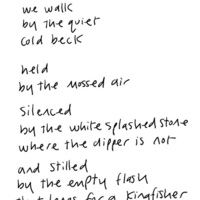 we walk
by the quiet
cold beck
held
by the mossed air
silenced
by the white splashed stone
where the dipper is not
and stilled
by the empty flash
that longs for a kingfisher